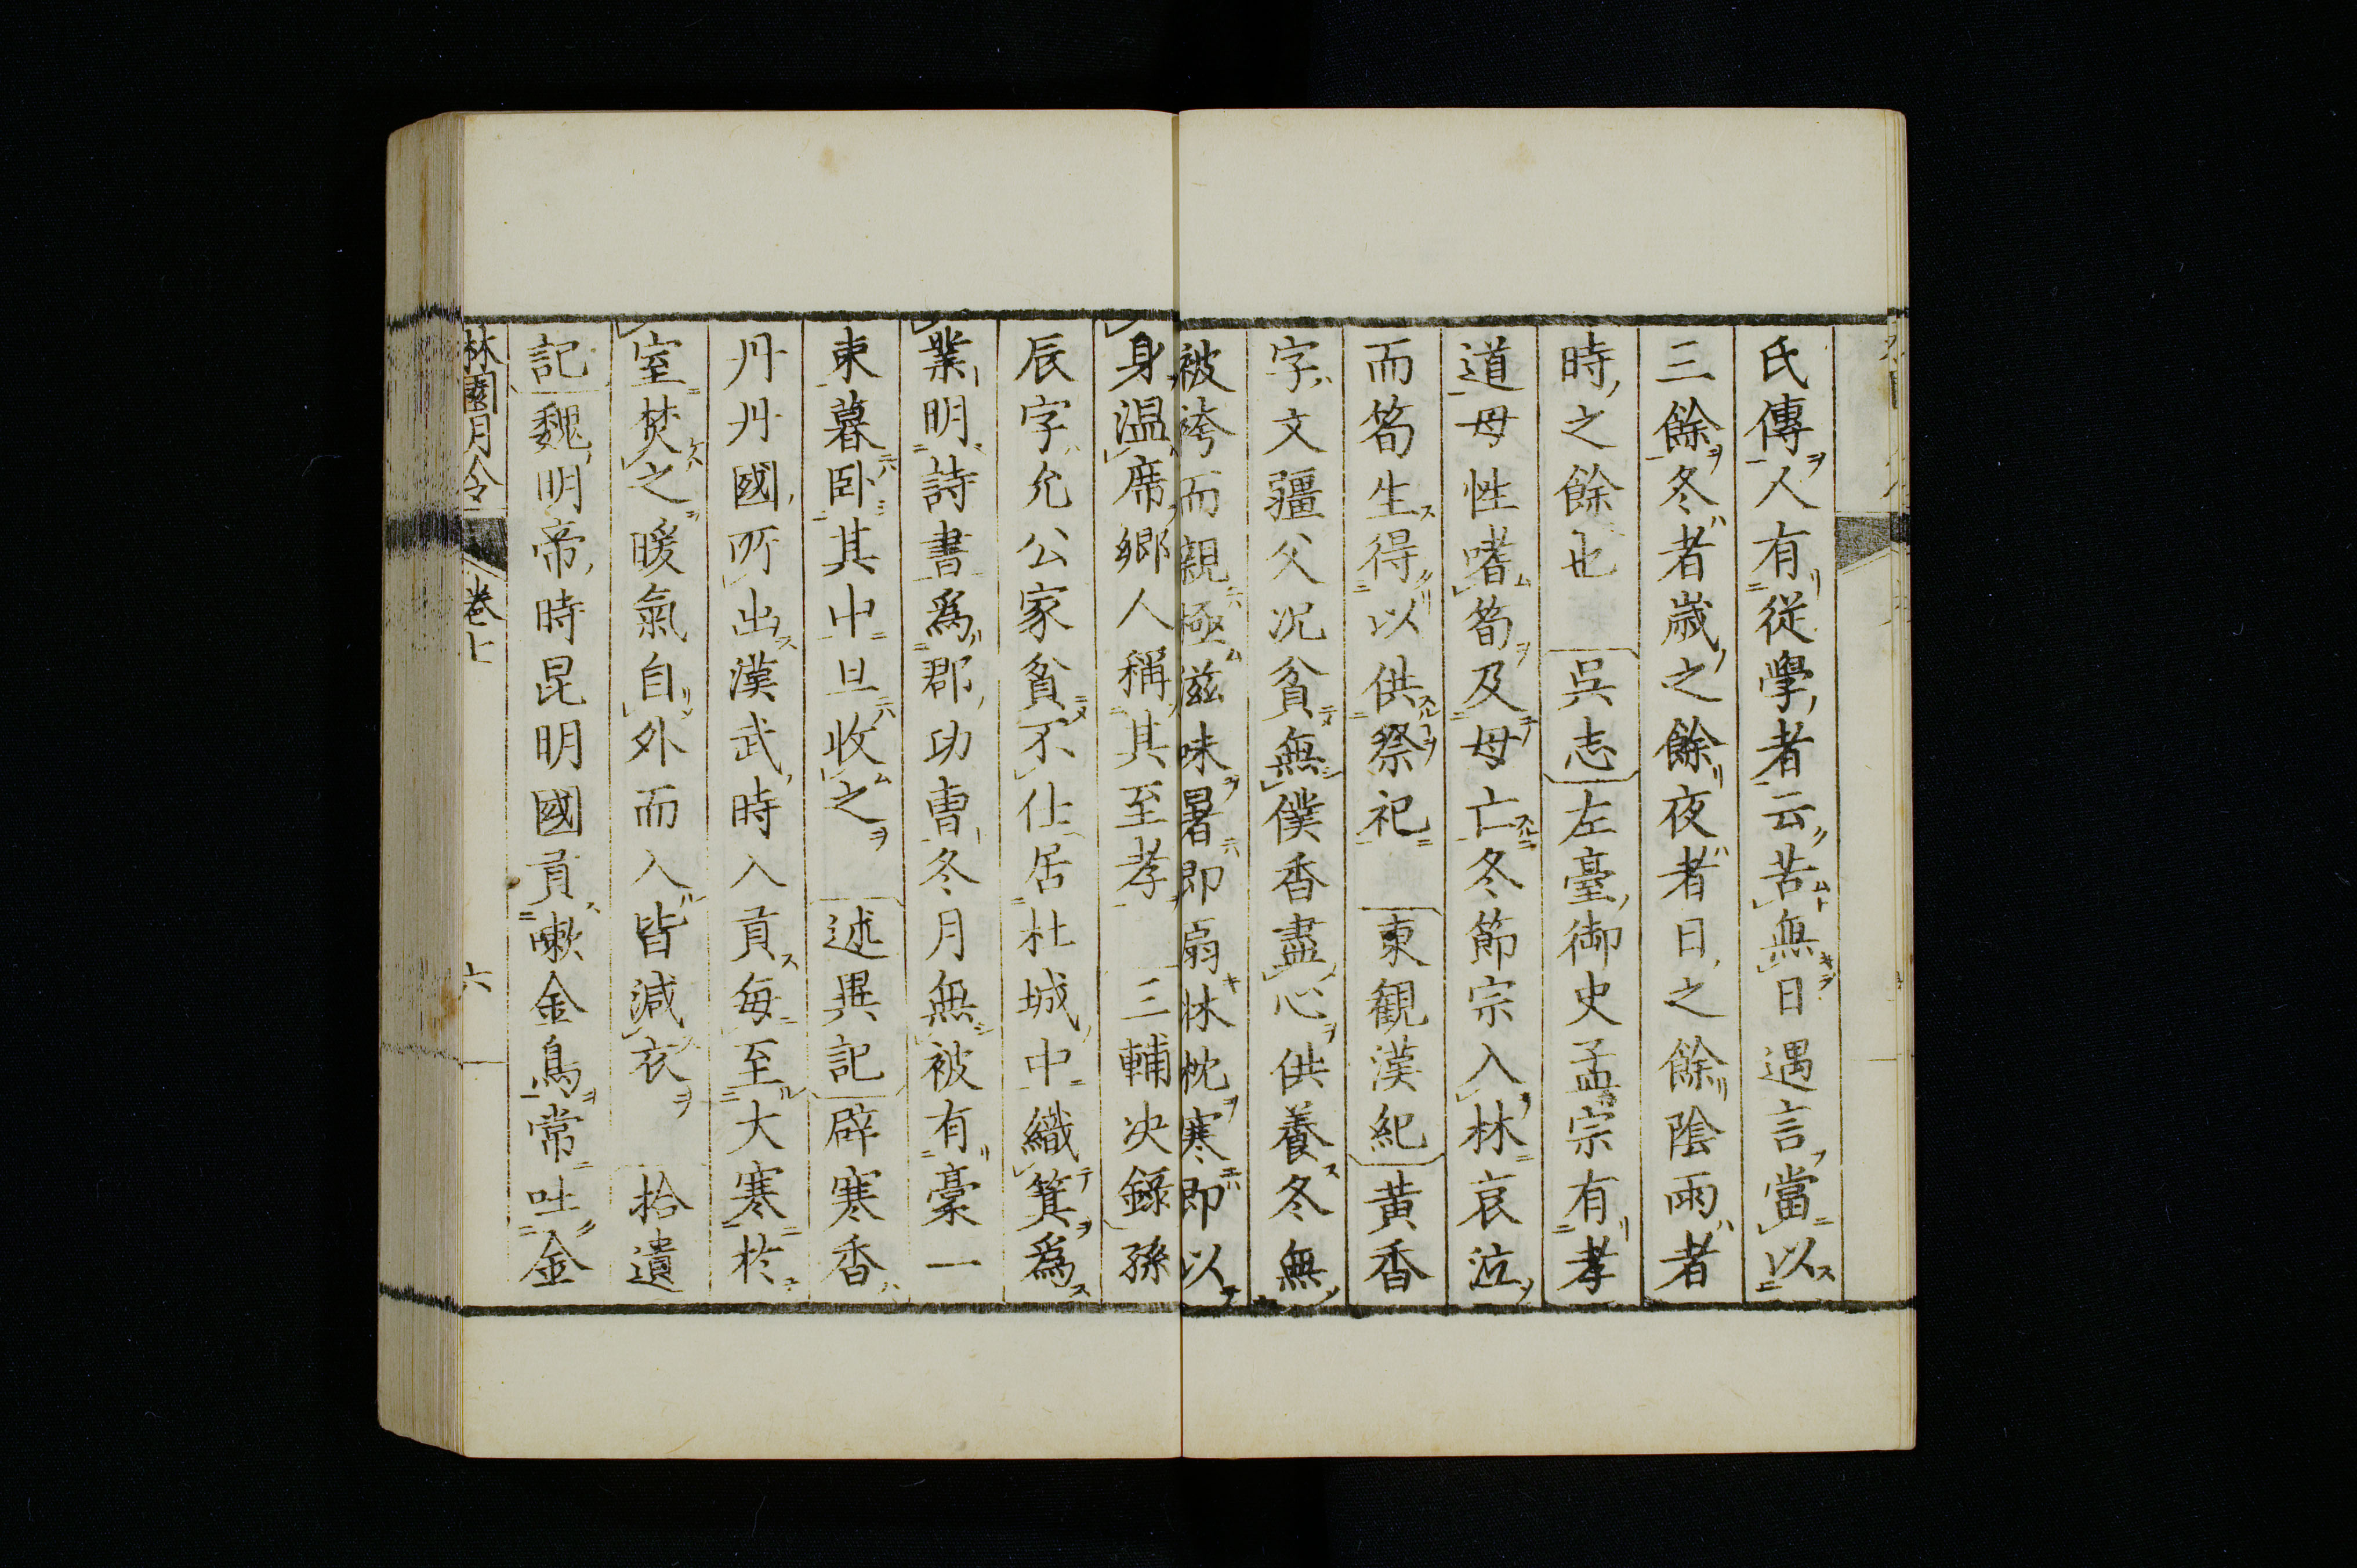 氏傳人有從學者云苦無日遇言當以
三餘冬者歲之餘夜者日之餘陰雨者
時之餘也 吳志 左臺御史孟宗有孝
道母性嗜筍及母亡冬節宗入林哀泣
而筍生得以供祭祀 東觀漢紀 黃香
字文疆父況貧無僕香盡心供養冬無
被袴而親極滋味暑即扇牀枕寒即以
身溫席鄉人稱其至孝 三輔決錄 孫
辰字允公家貧不仕居杜城中織箕為
業明詩書為郡功曹冬月無被有藁一
束暮卧其中旦收之 述異記 辟寒香
丹丹國所出漢武時入貢每至大寒於
室焚之暖氣自外而入皆減衣 拾遺
記 魏明帝時昆明國貢嗽金鳥常吐金
林園月令 卷七 六